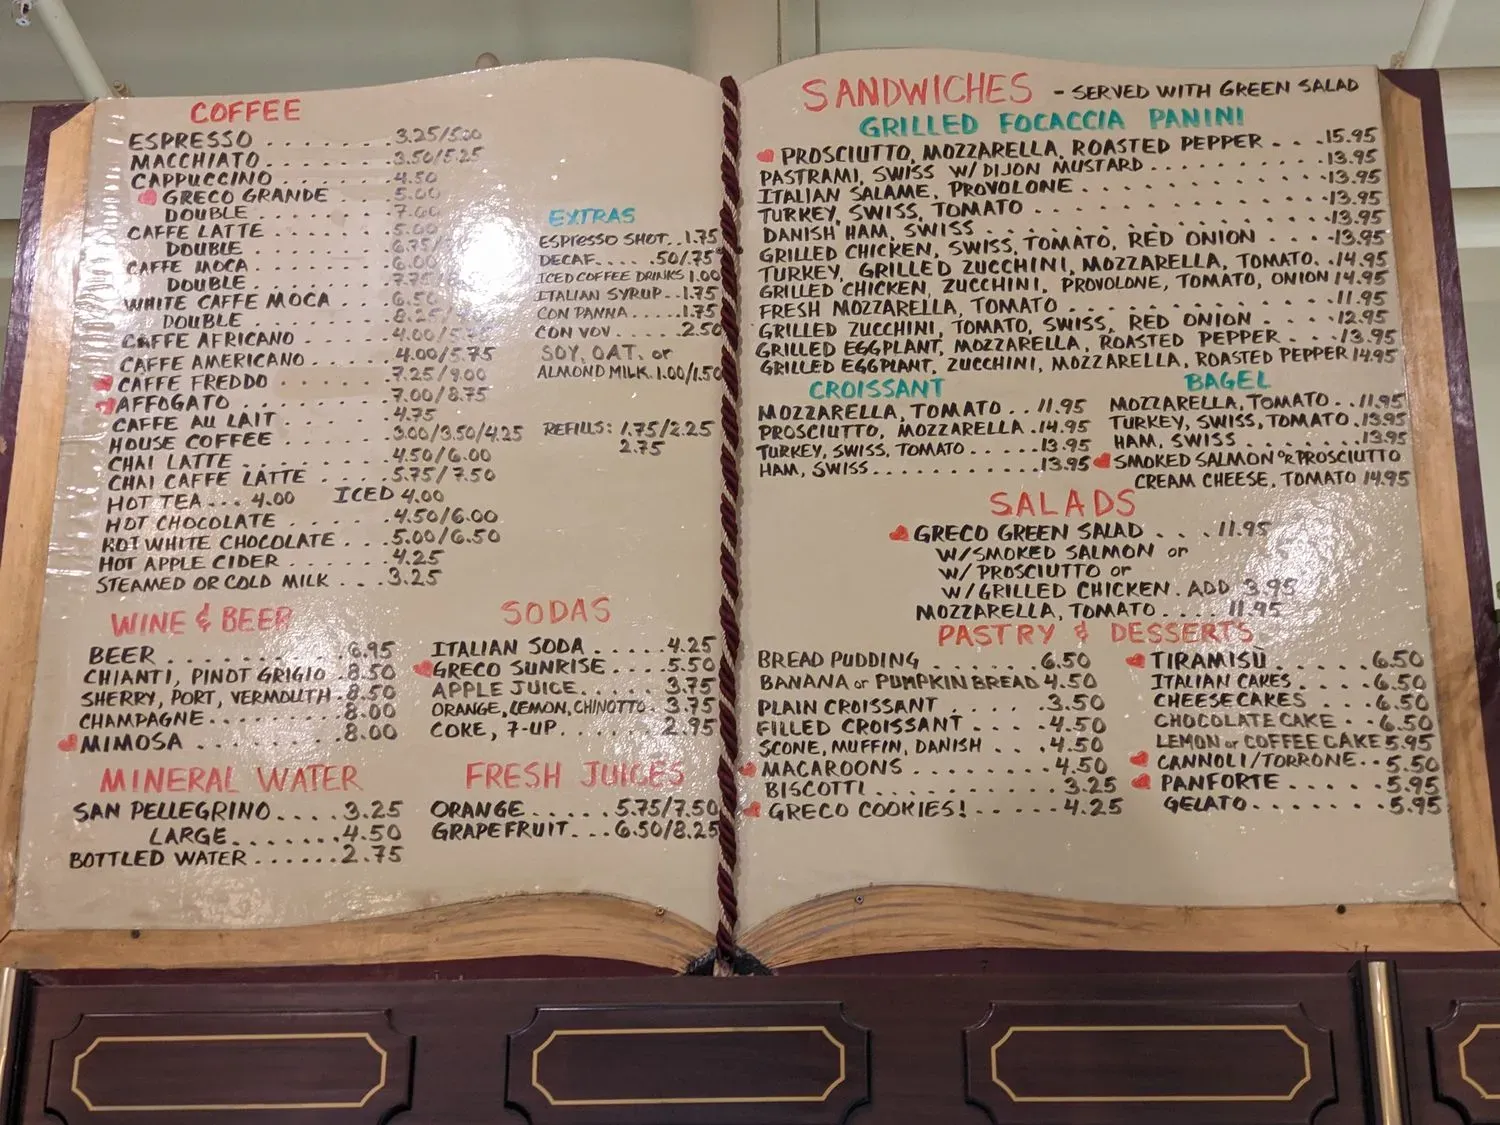 COFFEE
ESPRESSO . . . . . . . . 3.25/5.00
MACCHIATO . . . . . . . 3.50/5.25
CAPPUCCINO . . . . . . . 4.50
GRECO GRANDE . . . . 5.00
DOUBLE . . . . . . . . 7.00
CAFFE LATTE . . . . . . . 5.00
DOUBLE . . . . . . . .
CAFFE MOCA . . . . . . . 6.00
DOUBLE . . . . . . . .
WHITE CAFFE MOCA . . . 6.50
DOUBLE . . . . . . . .
CAFFE AFRICANO . . . . . 4.00/
CAFFE AMERICANO . . . . 4.00/5.75
CAFFE FREDDO . . . . . . 7.25/9.00
AFFOGATO . . . . . . . . 7.00/8.75
CAFFE AU LAIT . . . . . . 4.75
HOUSE COFFEE . . . . . . 3.00/3.50/4.25
CHAI LATTE . . . . . . . . 4.50/6.00
CHAI CAFFE LATTE . . . . 5.75/7.50
HOT TEA... 4.00 ICED 4.00
HOT CHOCOLATE . . . . . 4.50/6.00
HOT WHITE CHOCOLATE . . . 5.00/6.50
HOT APPLE CIDER . . . . . 4.25
STEAMED OR COLD MILK . . . 3.25
EXTRAS
ESPRESSO SHOT..1.75
DECAF.....50/75
ICED COFFEE DRINKS 1.00
ITALIAN SYRUP..1.75
CON PANNA.....1.75
CON VOV.....2.50
SOY, OAT. or
ALMOND MILK. 1.00/1.50
REFILLS: 1.75/2.25
2.75
WINE & BEER
BEER . . . . . . . . . 6.95
CHIANTI, PINOT GRIGIO .8.50
SHERRY, PORT, VERMOUTH .8.50
CHAMPAGNE.........8.00
MIMOSA . . . . . . . . 8.00
SODAS
ITALIAN SODA . . . . .4.25
GRECO SUNRISE . . . .5.50
APPLE JUICE. . . . . . 3.75
ORANGE, LEMON, CHINOTTO. . 3.75
COKE, 7-UP. . . . . . . 2.95
MINERAL WATER
SAN PELLEGRINO. . . . 3.25
LARGE. . . . . . . 4.50
BOTTLED WATER......2.75
FRESH JUICES
ORANGE. . . . . . 5.75/7.50
GRAPEFRUIT...6.50/8.25
SANDWICHES - SERVED WITH GREEN SALAD
GRILLED FOCACCIA PANINI
PROSCIUTTO, MOZZARELLA, ROASTED PEPPER . . . 15.95
PASTRAMI, SWISS W/DIJON MUSTARD . . . . . . . 13.95
ITALIAN SALAME, PROVOLONE . . . . . . . . . . 13.95
TURKEY, SWISS, TOMATO . . . . . . . . . . . . 13.95
DANISH HAM, SWISS . . . . . . . . . . . . . . 13.95
GRILLED CHICKEN, SWISS, TOMATO, RED ONION . . . 13.95
TURKEY, GRILLED ZUCCHINI, MOZZARELLA, TOMATO. . 14.95
GRILLED CHICKEN, ZUCCHINI, PROVOLONE, TOMATO, ONION 14.95
FRESH MOZZARELLA, TOMATO . . . . . . . . . . 11.95
GRILLED ZUCCHINI, TOMATO, SWISS, RED ONION . . . 12.95
GRILLED EGGPLANT, MOZZARELLA, ROASTED PEPPER . . 13.95
GRILLED EGGPLANT, ZUCCHINI, MOZZARELLA, ROASTED PEPPER 14.95
CROISSANT
MOZZARELLA, TOMATO . . 11.95
PROSCIUTTO, MOZZARELLA .14.95
TURKEY, SWISS, TOMATO. . . . .13.95
HAM, SWISS...........13.95
BAGEL
MOZZARELLA, TOMATO . . 11.95
TURKEY, SWISS, TOMATO .13.95
HAM, SWISS. . . . . . . .13.95
SMOKED SALMON OR PROSCIUTTO
CREAM CHEESE, TOMATO 14.95
SALADS
GRECO GREEN SALAD . . . 11.95
W/SMOKED SALMON or
W/ PROSCIUTTO or
W/GRILLED CHICKEN. ADD 3.95
MOZZARELLA, TOMATO . . . . 11.95
PASTRY & DESSERTS
BREAD PUDDING . . . . . . 6.50
BANANA or PUMPKIN BREAD 4.50
PLAIN CROISSANT . . . . . 3.50
FILLED CROISSANT . . . . 4.50
SCONE, MUFFIN, DANISH . . . 4.50
MACAROONS . . . . . . . . 4.50
BISCOTTI . . . . . . . . . . 3.25
GRECO COOKIES! . . . . . 4.25
TIRAMISÙ . . . . . . .6.50
ITALIAN CAKES . . . . .6.50
CHEESECAKES . . . . 6.50
CHOCOLATE CAKE . . .6.50
LEMON or COFFEE CAKE 5.95
CANNOLI/TORRONE.. 5.50
PANFORTE . . . . . . 5.95
GELATO. . . . . . . . 5.95